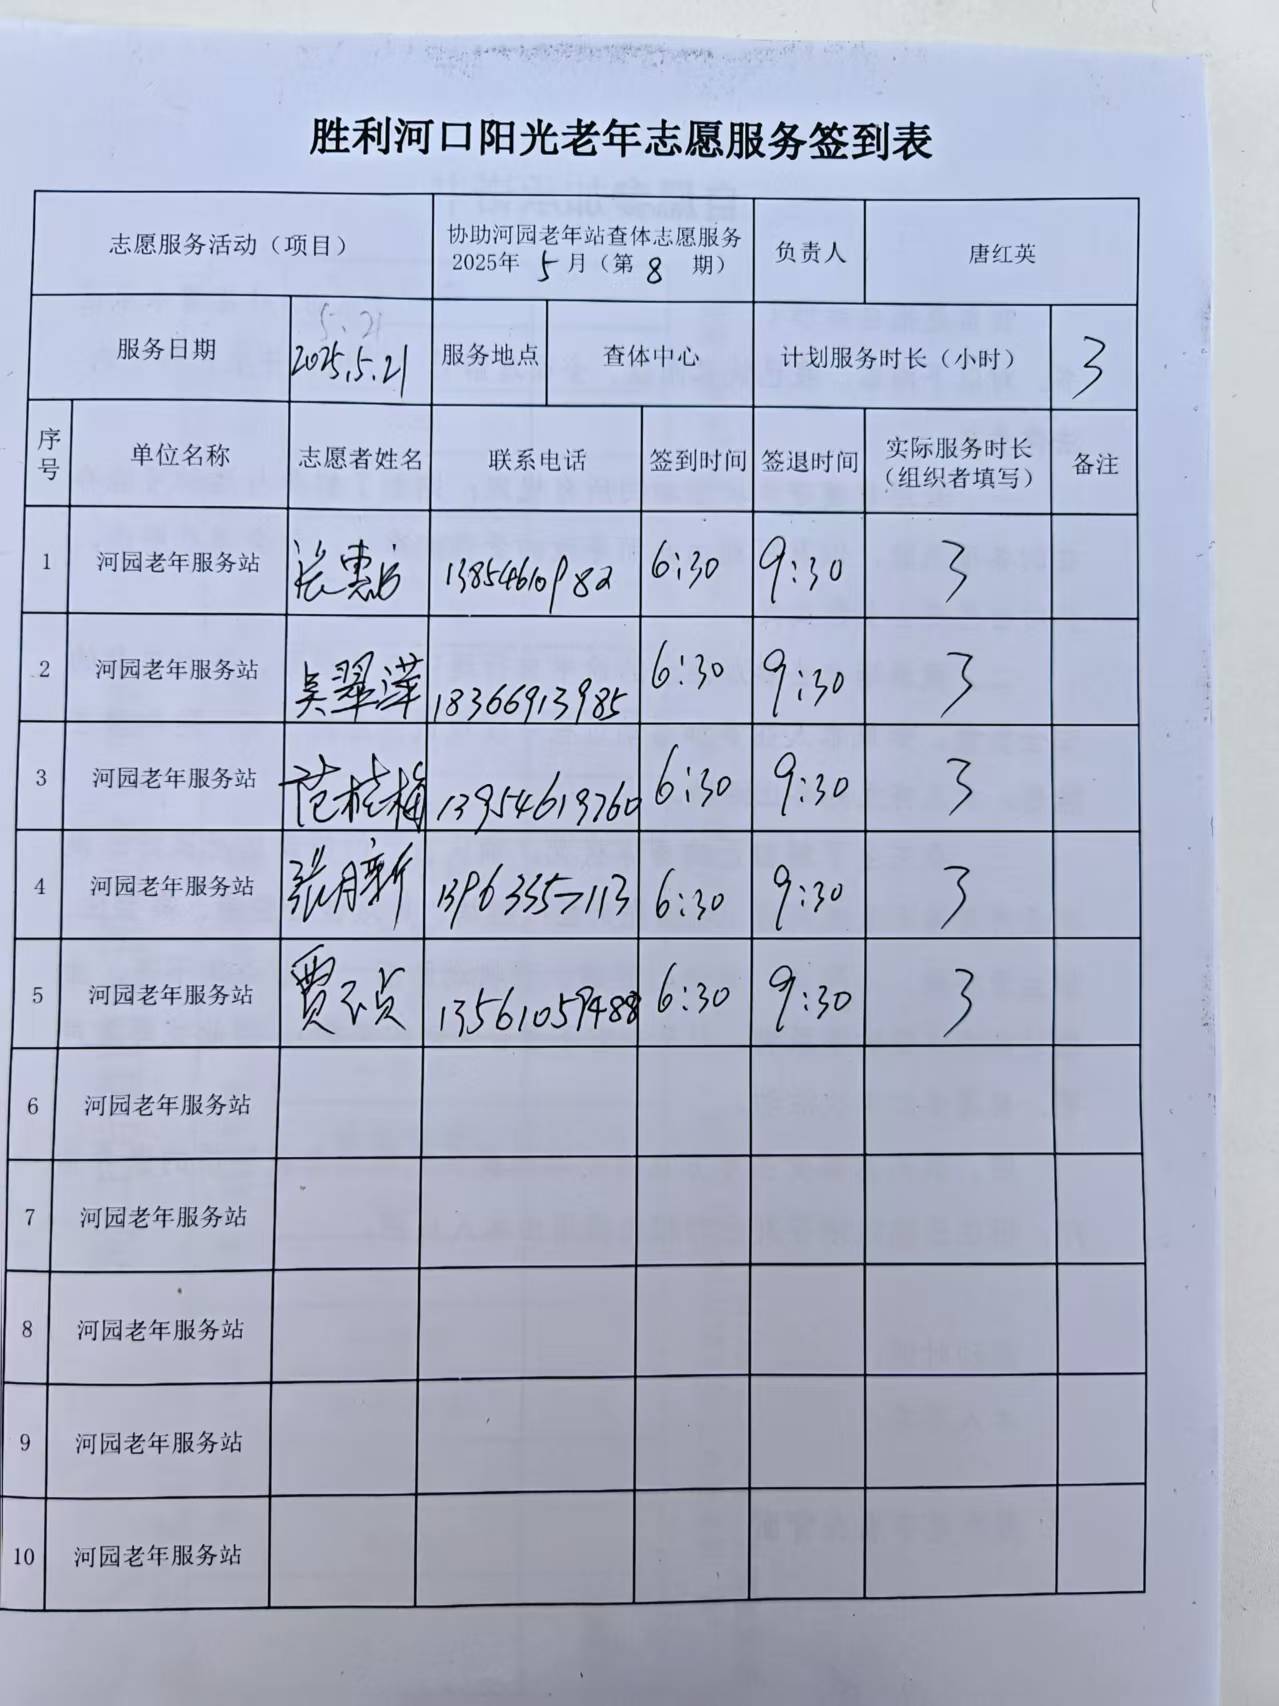 胜利河口阳光老年志愿服务签到表
志愿服务活动（项目） 协助河园老年站查体志愿服务 2025年 5 月（第 8 期） 负责人 唐红英
5.21
服务日期 2025.5.21 服务地点 查体中心 计划服务时长（小时） 3
序号 单位名称 志愿者姓名 联系电话 签到时间 签退时间 实际服务时长（组织者填写） 备注
1 河园老年服务站 13854610982 6:30 9:30 3
2 河园老年服务站 吴翠萍 18366913985 6:30 9:30 3
3 河园老年服务站 范桂梅 13954619760 6:30 9:30 3
4 河园老年服务站 张月新 13963357113 6:30 9:30 3
5 河园老年服务站 贾 13561059488 6:30 9:30 3
6 河园老年服务站
7 河园老年服务站
8 河园老年服务站
9 河园老年服务站
10 河园老年服务站